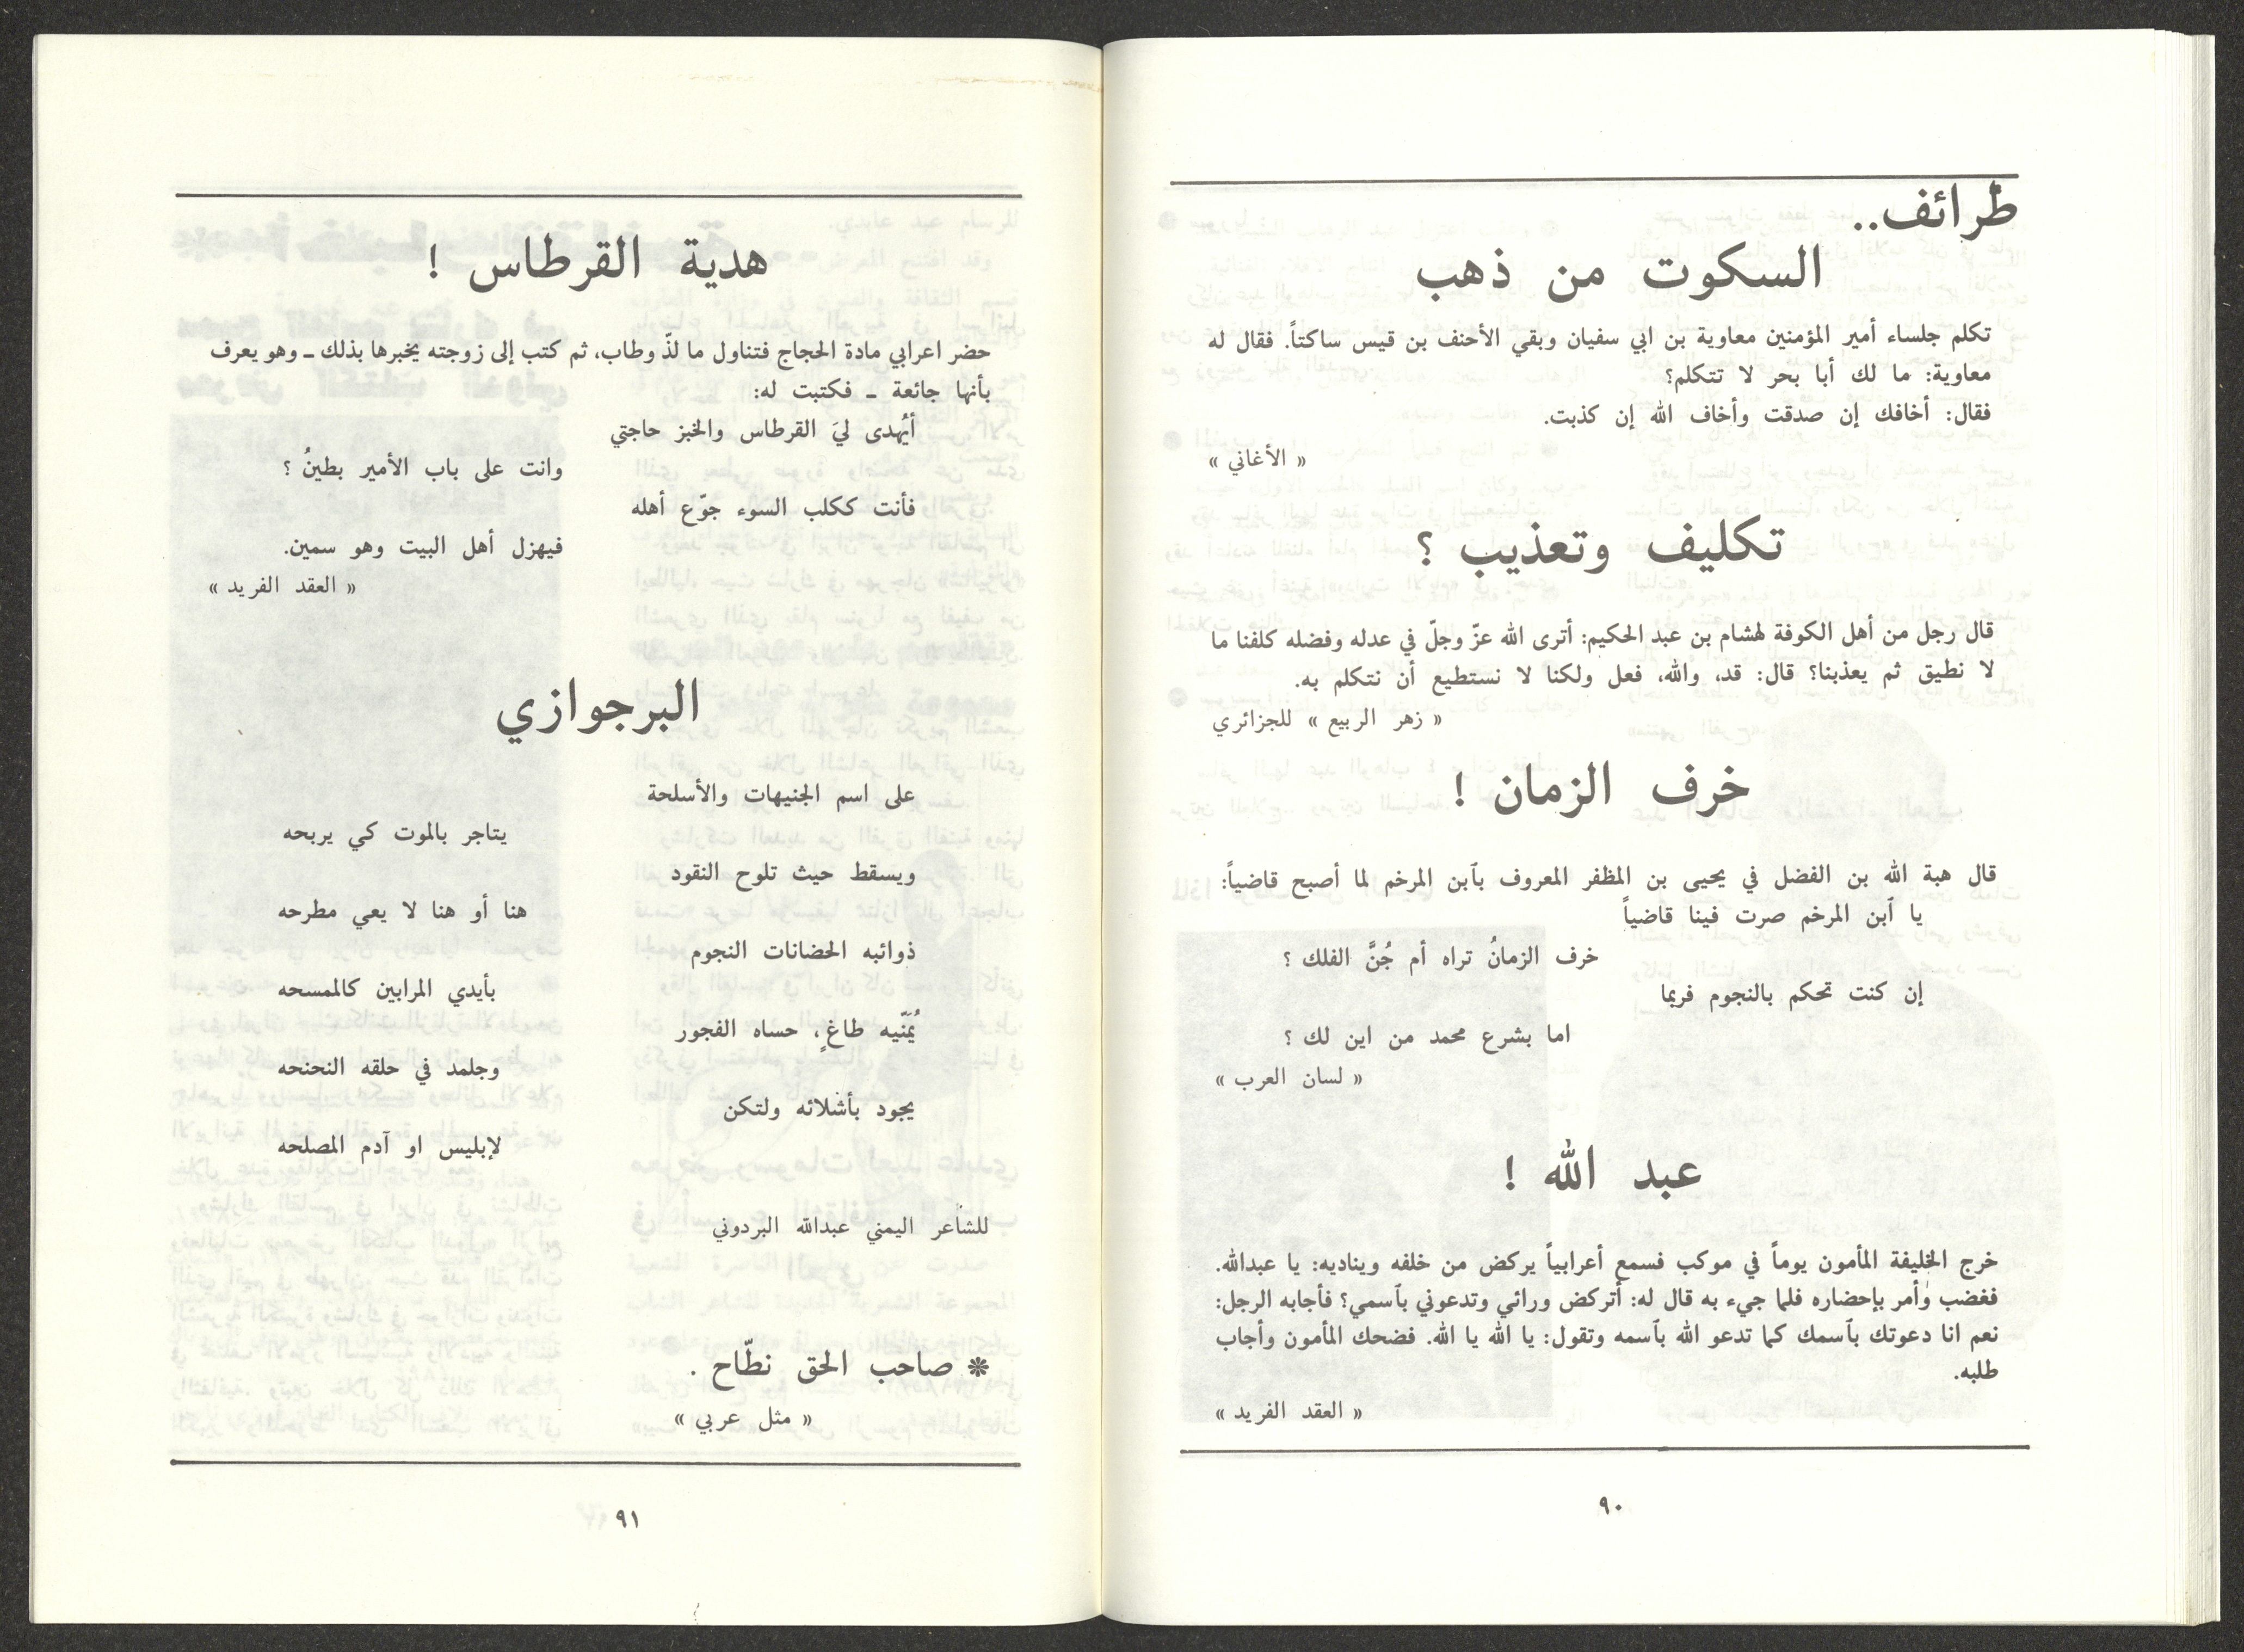 طرائف..
السكوت من ذهب
تكلم جلساء أمير المؤمنين معاوية بن ابي سفيان وبقي الأحنف بن قيس ساكتاً. فقال له
معاوية: ما لك أبا بحر لا تتكلم؟
فقال: أخافك إن صدقت وأخاف الله إن كذبت.
« الأغاني »
تكليف وتعذيب ؟
قال رجل من أهل الكوفة لهشام بن عبد الحكيم: أترى الله عزّ وجلّ في عدله وفضله كلفنا ما
لا نطيق ثم يعذبنا؟ قال: قد، والله، فعل ولكنا لا نستطيع أن نتكلم به.
« زهر الربيع » للجزائري
خرف الزمان !
قال هبة الله بن الفضل في يحيى بن المظفر المعروف بٱبن المرخم لما أصبح قاضياً:
يا ٱبن المرخم صرت فينا قاضياً
خرف الزمانُ تراه أم جُنَّ الفلك ؟
إن كنت تحكم بالنجوم فربما
اما بشرع محمد من اين لك ؟
« لسان العرب »
عبد الله !
خرج الخليفة المأمون يوماً في موكب فسمع أعرابياً يركض من خلفه ويناديه: يا عبدالله.
فغضب وأمر بإحضاره فلما جيء به قال له: أتركض ورائي وتدعوني بٱسمي؟ فأجابه الرجل:
نعم انا دعوتك بٱسمك كما تدعو الله بٱسمه وتقول: يا الله يا الله. فضحك المأمون وأجاب
طلبه.
« العقد الفريد »
٩٠
هدية القرطاس !
حضر اعرابي مادة الحجاج فتناول ما لذّ وطاب، ثم كتب إلى زوجته يخبرها بذلك ـ وهو يعرف
بأنها جائعة ـ فكتبت له:
أيُهدى ليَ القرطاس والخبز حاجتي
وانت على باب الأمير بطينُ ؟
فأنت ككلب السوء جوّع أهله
فيهزل أهل البيت وهو سمين.
« العقد الفريد »
البرجوازي
على اسم الجنيهات والأسلحة
يتاجر بالموت كي يربحه
ويسقط حيث تلوح النقود
هنا أو هنا لا يعي مطرحه
ذوائبه الحضانات النجوم
بأيدي المرابين كالممسحه
يُمَنّيه طاغٍ، حساه الفجور
وجلمد في حلقه النحنحه
يجود بأشلائه ولتكن
لإبليس او آدم المصلحه
للشاعر اليمني عبدالله البردوني
❊ صاحب الحق نطّاح .
« مثل عربي »
٩١